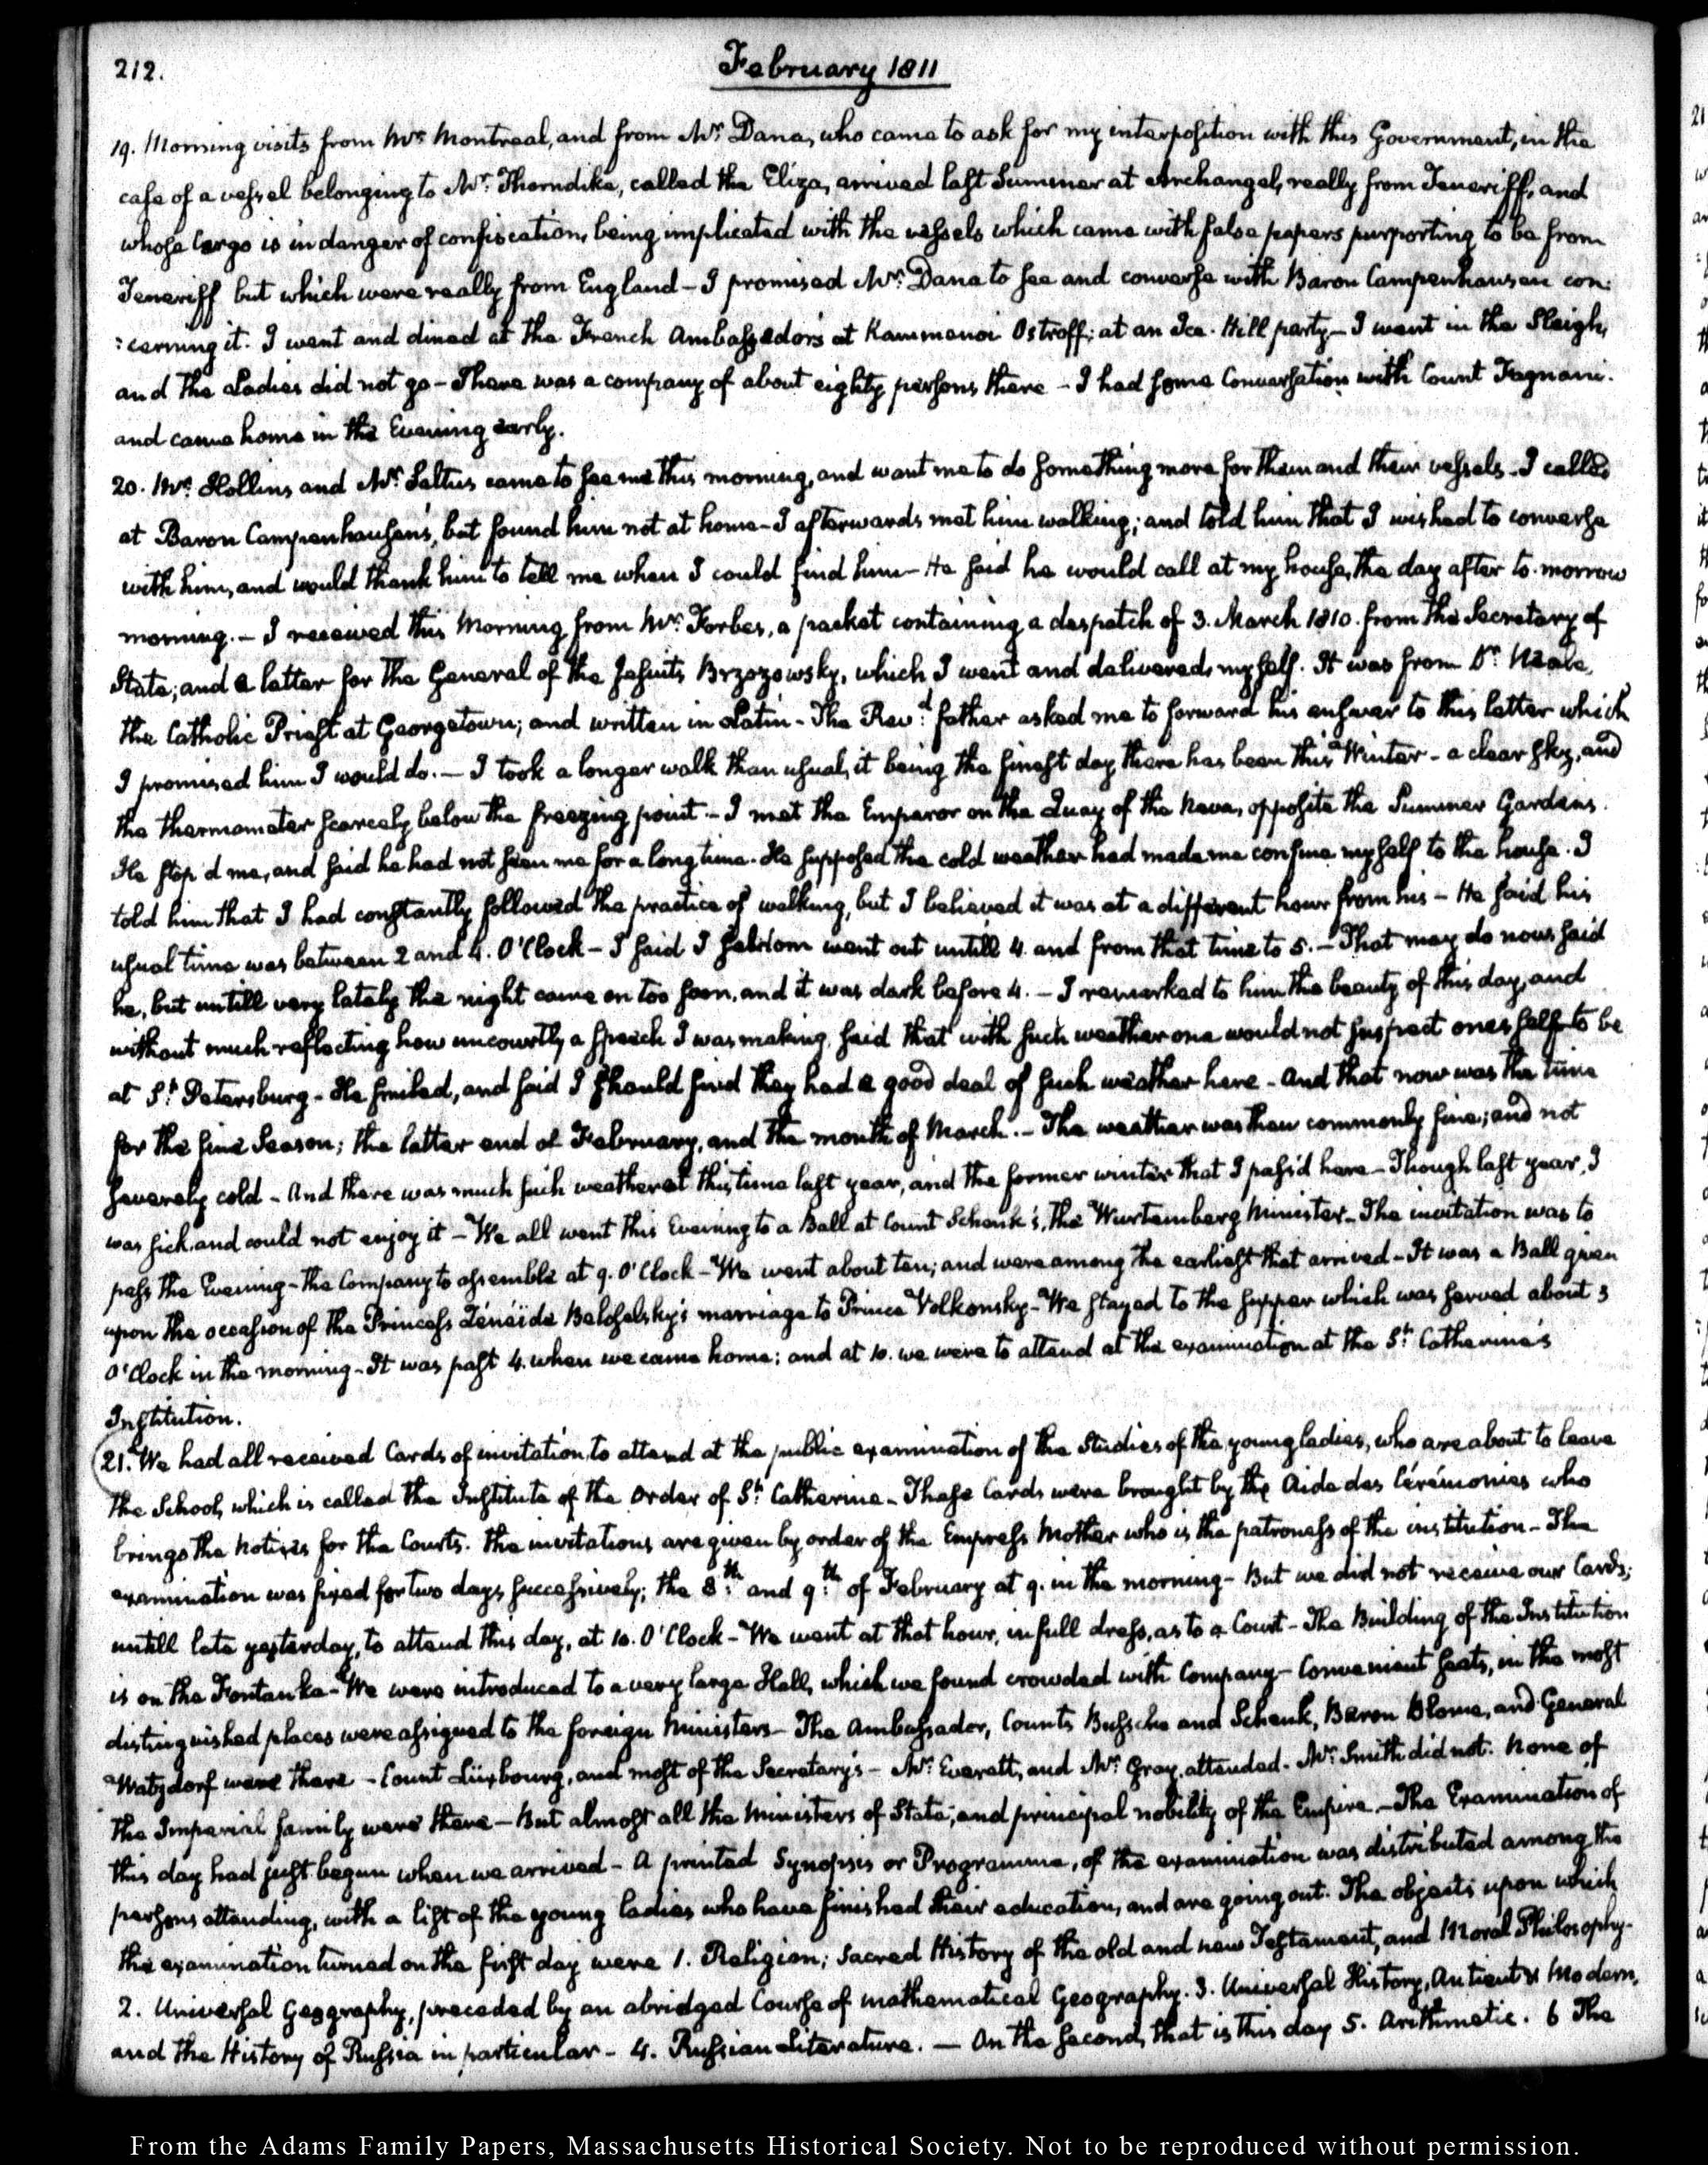 212.
February 1811
19. Morning visits from Mr. Montreal, and from Mr. Dana, who came to ask for my interposition with this Government, in the
case of a vessel belonging to Mr. Thorndike, called the Eliza, arrived last Summer at Archangel, really from Teneriff, and
whose Cargo is in danger of confiscation, being implicated with the vessels which came with false papers purporting to be from
Teneriff but which were really from England – I promised Mr. Dana to see and converse with Baron Campenhausen con:
:cerning it. I went and dined at the French Ambassador's at Kammenoi Ostroff; at an Ice-Hill party – I went in the Sleigh,
and the Ladies did not go – There was a company of about eighty persons there – I had some Conversation with Count Fagnani.
and came home in the Evening early.
20. Mr. Hollins and Mr. Saltus came to see me this morning, and want me to do something more for them and their vessels – I called
at Baron Campenhausen's, but found him not at home – I afterwards met him walking; and told him that I wished to converse
with him, and would thank him to tell me when I could find him – He said he would call at my house, the day after to-morrow
morning. – I received this Morning from Mr. Forbes, a packet containing a despatch of 3. March 1810. from the Secretary of
State; and a letter for the General of the Jesuits Brzozowsky, which I went and delivered, myself. It was from Dr. Neale,
the Catholic Priest at Georgetown; and written in Latin – The Revd. father asked me to forward his answer to this letter which
I promised him I would do. – I took a longer walk than usual, it being the finest day there has been this Winter – a clear sky, and
the thermometer scarcely below the freezing point – I met the Emperor on the Quay of the Neva, opposite the Summer Gardens.
He stop'd me, and said he had not seen me for a long time. He supposed the cold weather had made me confine myself to the house. I
told him that I had constantly followed the practice of walking, but I believed it was at a different hour from his – He said his
usual time was between 2 and 4. O'Clock – I said I seldom went out untill 4. and from that time to 5. – That may do now, said
he, but untill very lately the night came on too soon, and it was dark before 4. – I remarked to him the beauty of this day, and
without much reflecting how uncourtly a speech I was making, said that with such weather one would not suspect ones self to be
at St. Petersburg – He smiled, and said I should find they had a good deal of such weather here – And that now was the time
for the fine Season; the latter end of February, and the month of March. – The weather was then commonly fine; and not
severely cold – And there was much such weather at this time last year, and the former winter that I pass'd here – Though last year, I
was sick and could not enjoy it – We all went this Evening to a Ball at Count Schenk's, the Wurtemberg Minister – The invitation was to
pass the Evening – the Company to assemble at 9. O'Clock – We went about ten; and were among the earliest that arrived – It was a Ball given
upon the occasion of the Princess Zénéïde Beloselsky's marriage to Prince Volkonsky – We stayed to the supper which was served about 3
O'Clock in the morning – It was past 4. when we came home; and at 10. we were to attend at the examination at the St. Catherine's
Institution.
21. We had all received Cards of invitation, to attend at the public examination of the Studies of the young ladies, who are about to leave
the School, which is called the Institute of the Order of St. Catherine – These Cards were brought by the Aide des Cérémonies who
brings the notices for the Courts. The invitations are given by order of the Empress Mother who is the patroness of the institution – The
examination was fixed for two days successively; the 8th. and 9th. of February at 9. in the morning – But we did not receive our Cards;
untill late yesterday, to attend this day, at 10. O'Clock – We went at that hour, in full dress, as to a Court – The Building of the Institution
is on the Fontanka – We were introduced to a very large Hall, which we found crowded with Company – Convenient seats, in the most
distinguished places were assigned to the foreign Ministers – The Ambassador, Counts Bussche and Schenk, Baron Blome, and General
Watzdorf were there – Count Lüxbourg, and most of the Secretary's – Mr. Everett, and Mr. Gray, attended. Mr. Smith did not. None of
the Imperial family were there – But almost all the Ministers of State, and principal nobility of the Empire – The Examination of
this day had just begun when we arrived – A printed Synopsis or Programme, of the examination was distributed among the
persons attending, with a list of the young ladies who have finished their education, and are going out. The objects upon which
the examination turned on the first day were 1. Religion; Sacred History of the old and new Testament, and Moral Philosophy –
2. Universal Geography, preceded by an abridged Course of mathematical Geography. 3. Universal History, Antient & Modern,
and the History of Russia in particular – 4. Russian Literature. – On the Second, that is this day 5. Arithmetic. 6 The
From the Adams Family Papers, Massachusetts Historical Society. Not to be reproduced without permission.